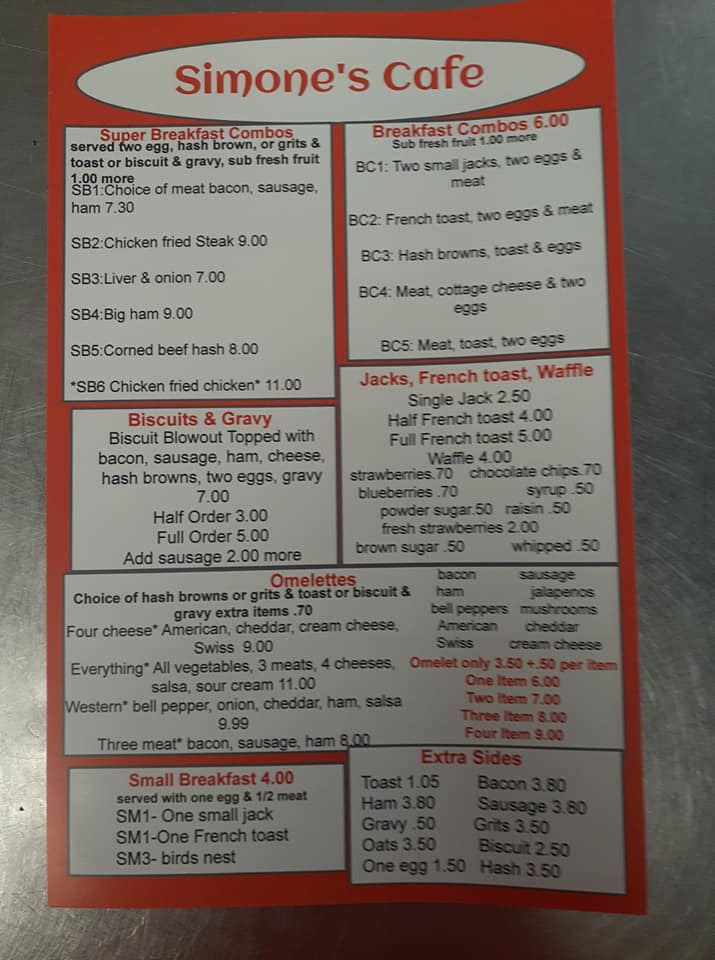 Simone's Cafe
Super Breakfast Combos
served two egg, hash brown, or grits &
toast or biscuit & gravy, sub fresh fruit
1.00 more
SB1:Choice of meat bacon, sausage,
ham 7.30
SB2:Chicken fried Steak 9.00
SB3:Liver & onion 7.00
SB4:Big ham 9.00
SB5:Corned beef hash 8.00
*SB6 Chicken fried chicken* 11.00
Breakfast Combos 6.00
Sub fresh fruit 1.00 more
BC1: Two small jacks, two eggs &
meat
BC2: French toast, two eggs & meat
BC3: Hash browns, toast & eggs
BC4: Meat, cottage cheese & two
eggs
BC5: Meat, toast, two eggs
Biscuits & Gravy
Biscuit Blowout Topped with
bacon, sausage, ham, cheese,
hash browns, two eggs, gravy
7.00
Half Order 3.00
Full Order 5.00
Add sausage 2.00 more
Jacks, French toast, Waffle
Single Jack 2.50
Half French toast 4.00
Full French toast 5.00
Waffle 4.00
strawberries.70 chocolate chips.70
blueberries .70 syrup .50
powder sugar.50 raisin .50
fresh strawberries 2.00
brown sugar .50 whipped .50
Omelettes
Choice of hash browns or grits & toast or biscuit &
gravy extra items .70
Four cheese* American, cheddar, cream cheese,
Swiss 9.00
Everything* All vegetables, 3 meats, 4 cheeses,
salsa, sour cream 11.00
Western* bell pepper, onion, cheddar, ham, salsa
9.99
Three meat* bacon, sausage, ham 8.00
bacon sausage
ham jalapenos
bell peppers mushrooms
American cheddar
Swiss cream cheese
Omelet only 3.50 +.50 per item
One Item 6.00
Two Item 7.00
Three Item 8.00
Four Item 9.00
Small Breakfast 4.00
served with one egg & 1/2 meat
SM1- One small jack
SM1-One French toast
SM3- birds nest
Extra Sides
Toast 1.05 Bacon 3.80
Ham 3.80 Sausage 3.80
Gravy .50 Grits 3.50
Oats 3.50 Biscuit 2.50
One egg 1.50 Hash 3.50